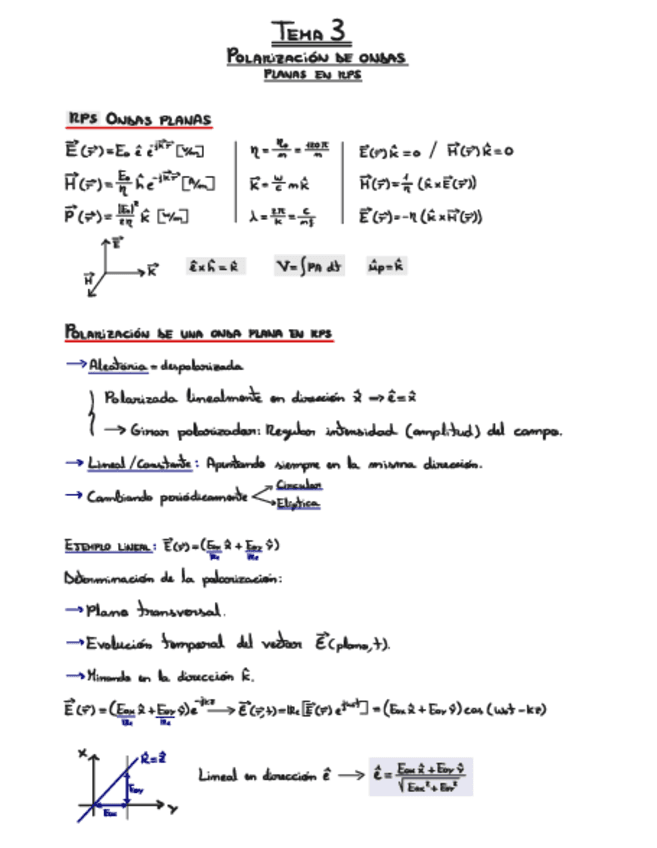 TEMA 3
POLARIZACIÓN DE ONDAS
PLANAS EN RPS
RPS ONDAS PLANAS
E⃗(r⃗)=E₀ ê e^(-jk⃗r⃗) [V/m]
H⃗(r⃗)=E₀/η ĥ e^(-jk⃗r⃗) [A/m]
P⃗(r⃗)=|E₀|²/2η k̂ [W/m]
η = η₀/n = 120π/n
k⃗ = w/c n k̂
λ = 2π/k = c/nf
E⃗(r⃗)k̂=0 / H⃗(r⃗)k̂=0
H⃗(r⃗)=1/η (k̂×E⃗(r⃗))
E⃗(r⃗)=-η (k̂×H⃗(r⃗))
E⃗
H⃗
K⃗
ê×ĥ=k̂
V=∫PA dt
ûp=k̂
POLARIZACIÓN DE UNA ONDA PLANA EN RPS
→ Aleatoria = despolarizada
Polarizada linealmente en dirección x̂ ⇒ ê=x̂
→ Girar polarizador: Regular intensidad (amplitud) del campo.
→ Lineal/Constante: Apuntando siempre en la misma dirección.
→ Cambiando periódicamente
Circular
Elíptica
EJEMPLO LINEAL: E⃗(r⃗)=(E₀ₓ x̂ + ŷ)
Determinación de la polarización:
→ Plano transversal.
→ Evolución temporal del vector E⃗(plano,t).
→ Mirando en la dirección k̂.
E⃗(r⃗)=(E₀ₓ x̂+E₀y ŷ)e^(-jkz) → E⃗(r⃗,t)=Re[E⃗(r⃗) e^(jwt)] = (E₀ₓ x̂+E₀y ŷ) cos (wt-kz)
X
k̂=ẑ
E₀y
E₀ₓ
Y
Lineal en dirección ê → ê = E₀ₓ x̂+E₀y ŷ / √(E₀ₓ²+E₀y²)